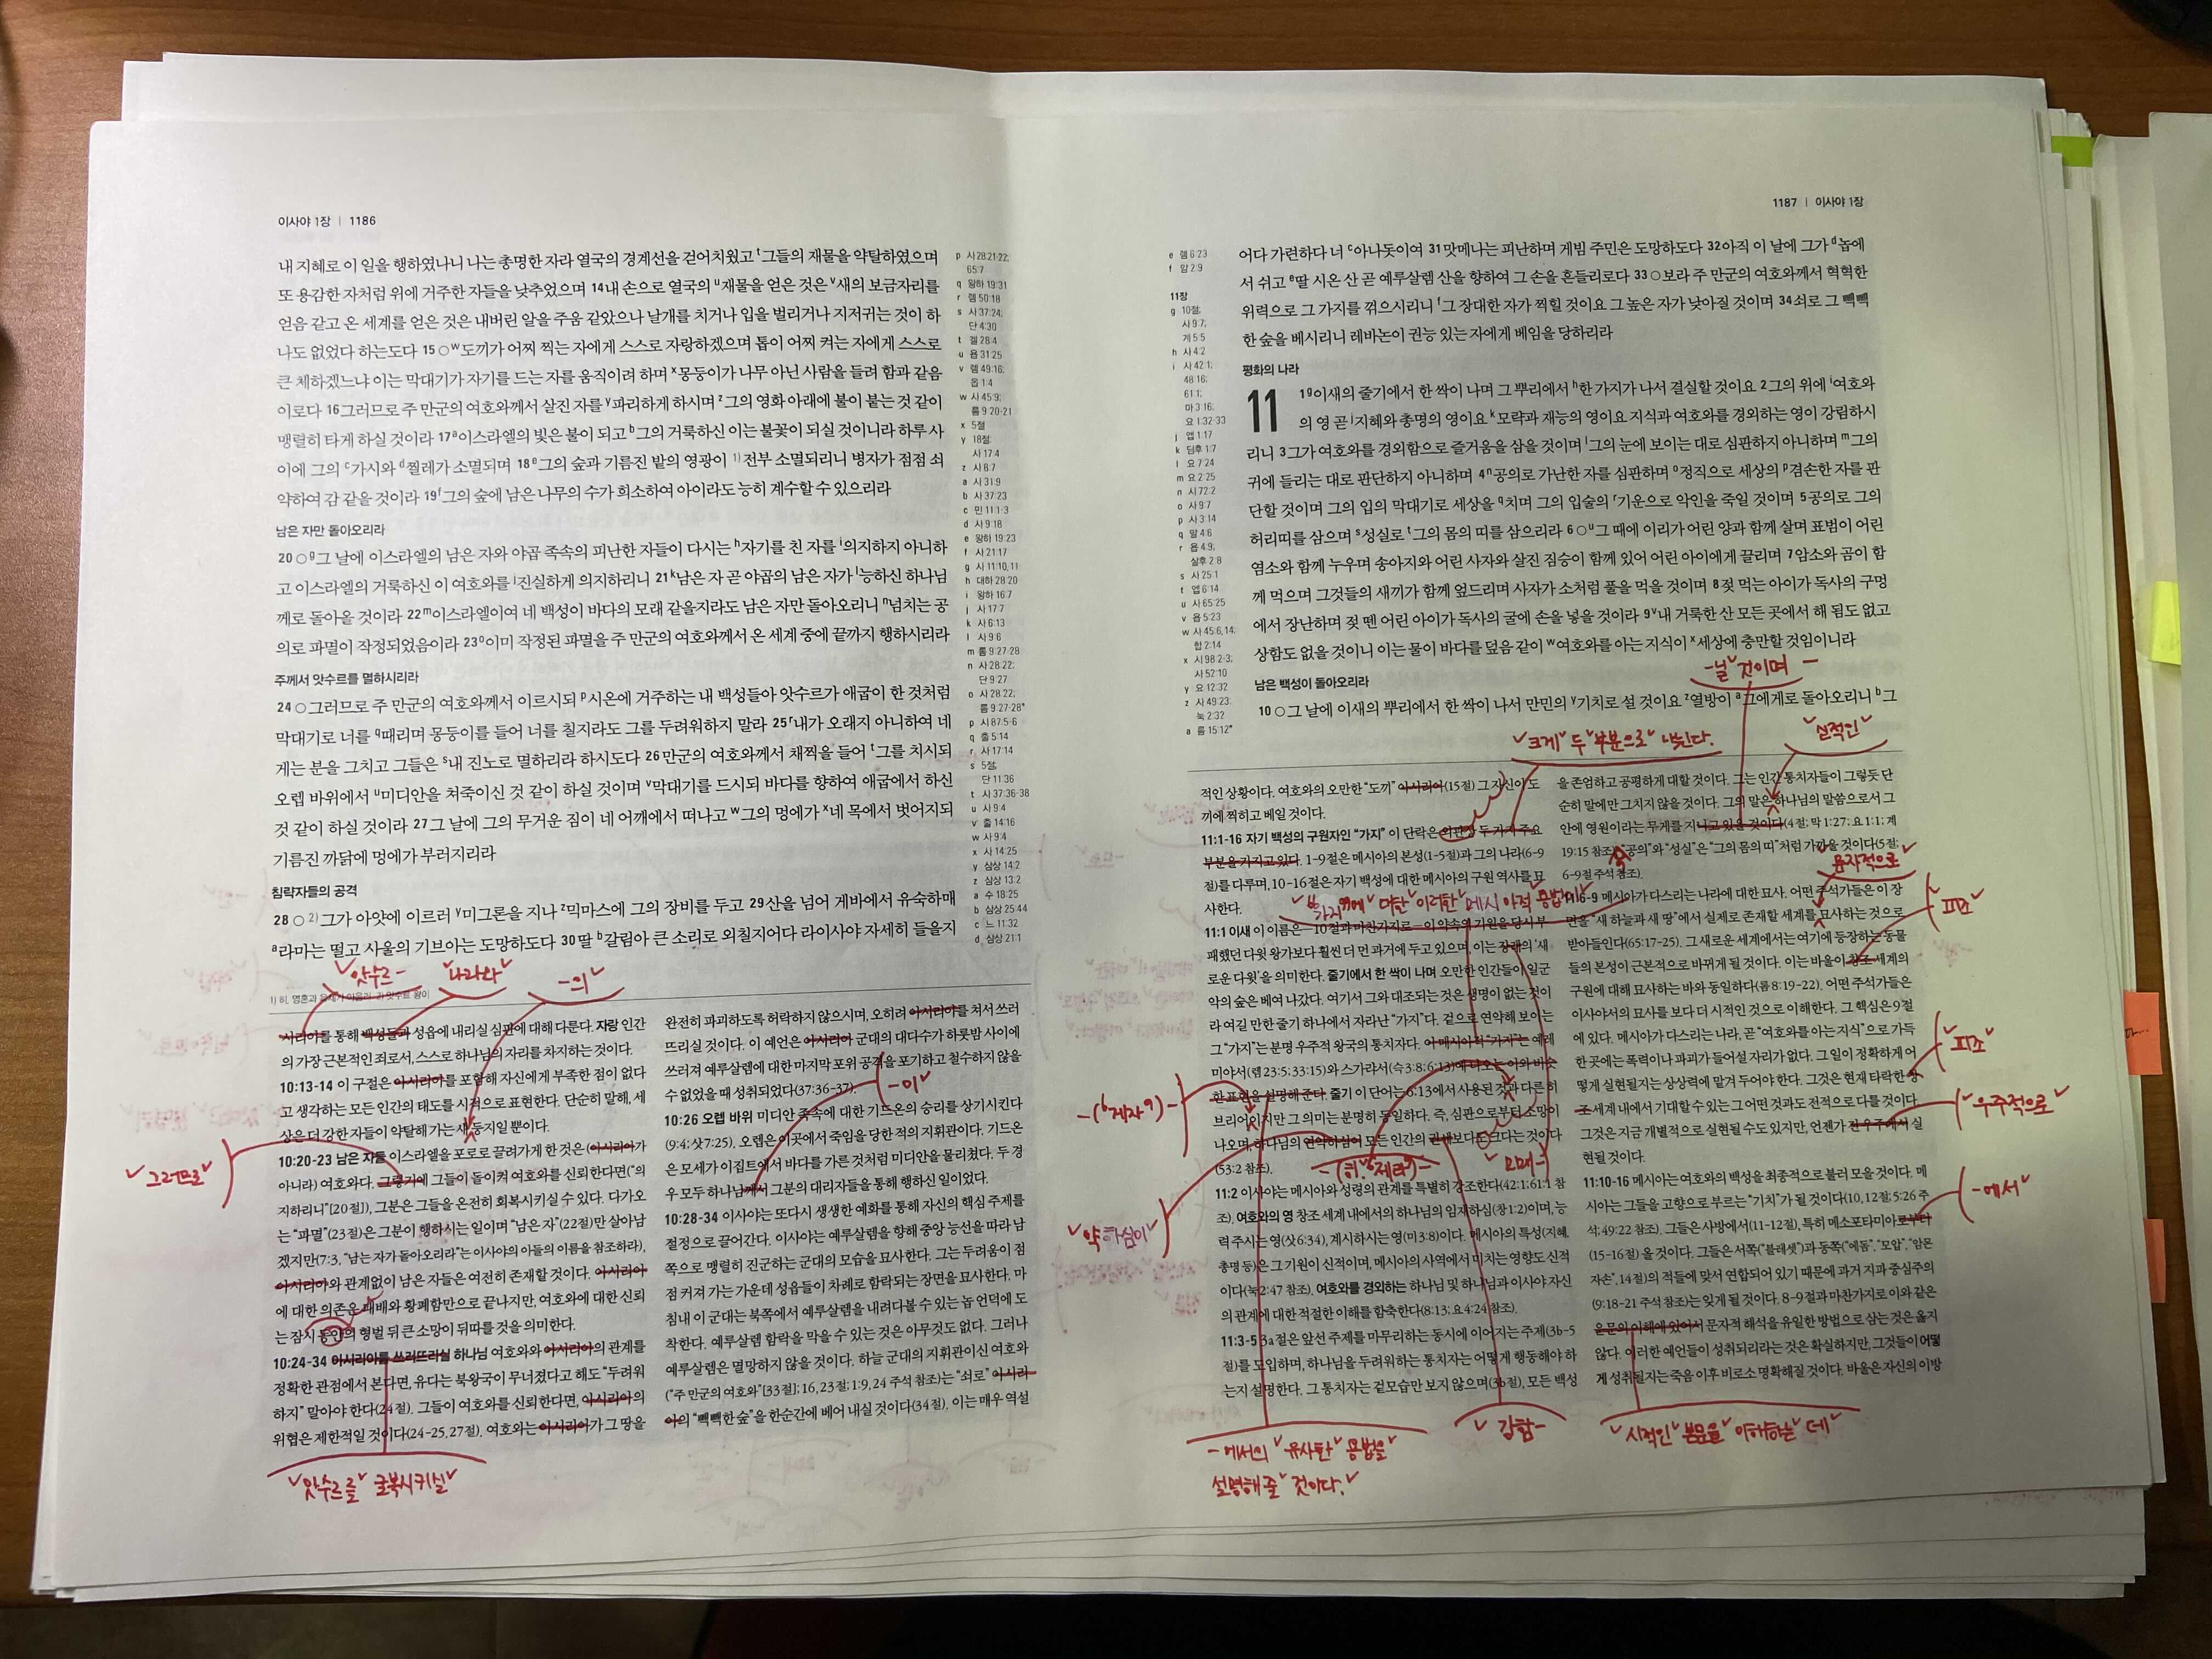 이사야 1장 | 1186
내 지혜로 이 일을 행하였나니 나는 총명한 자라 열국의 경계선을 걷어치웠고 t그들의 재물을 약탈하였으며
또 용감한 자처럼 위에 거주한 자들을 낮추었으며 14내 손으로 열국의 u재물을 얻은 것은 v새의 보금자리를
얻음 같고 온 세계를 얻은 것은 내버린 알을 주움 같았으나 날개를 치거나 입을 벌리거나 지저귀는 것이 하
나도 없었다 하는도다 15 ○w도끼가 어찌 찍는 자에게 스스로 자랑하겠으며 톱이 어찌 켜는 자에게 스스로
큰 체하겠느냐 이는 막대기가 자기를 드는 자를 움직이려 하며 x몽둥이가 나무 아닌 사람을 들려 함과 같음
이로다 16그러므로 주 만군의 여호와께서 살진 자를 y파리하게 하시며 z그의 영화 아래에 불이 붙는 것 같이
맹렬히 타게 하실 것이라 17a이스라엘의 빛은 불이 되고 b그의 거룩하신 이는 불꽃이 되실 것이니라 하루 사
이에 그의 c가시와 d찔레가 소멸되며 18e그의 숲과 기름진 밭의 영광이 1)전부 소멸되리니 병자가 점점 쇠
약하여 감 같을 것이라 19f그의 숲에 남은 나무의 수가 희소하여 아이라도 능히 계수할 수 있으리라
남은 자만 돌아오리라
20 ○g그 날에 이스라엘의 남은 자와 야곱 족속의 피난한 자들이 다시는 h자기를 친 자를 i의지하지 아니하
고 이스라엘의 거룩하신 이 여호와를 j진실하게 의지하리니 21k남은 자 곧 야곱의 남은 자가 l능하신 하나님
께로 돌아올 것이라 22m이스라엘이여 네 백성이 바다의 모래 같을지라도 남은 자만 돌아오리니 n넘치는 공
의로 파멸이 작정되었음이라 23o이미 작정된 파멸을 주 만군의 여호와께서 온 세계 중에 끝까지 행하시리라
주께서 앗수르를 멸하시리라
24 ○그러므로 주 만군의 여호와께서 이르시되 p시온에 거주하는 내 백성들아 앗수르가 애굽이 한 것처럼
막대기로 너를 q때리며 몽둥이를 들어 너를 칠지라도 그를 두려워하지 말라 25r내가 오래지 아니하여 네
게는 분을 그치고 그들은 s내 진노로 멸하리라 하시도다 26 만군의 여호와께서 채찍을 들어 t그를 치시되
오렙 바위에서 u미디안을 쳐죽이신 것 같이 하실 것이며 v막대기를 드시되 바다를 향하여 애굽에서 하신
것 같이 하실 것이라 27그 날에 그의 무거운 짐이 네 어깨에서 떠나고 w그의 멍에가 x네 목에서 벗어지되
기름진 까닭에 멍에가 부러지리라
침략자들의 공격
28 ○ 2)그가 아얏에 이르러 y미그론을 지나 z믹마스에 그의 장비를 두고 29산을 넘어 게바에서 유숙하매
a라마는 떨고 사울의 기브아는 도망하도다 30딸 b갈림아 큰 소리로 외칠지어다 라이사야 자세히 들을지
p 사28:21-22;
65:7
q 왕하 19:31
r 렘 50:18
s 사37:24;
단 4:30
t 겔 28:4
u 욥 31:25
v 렘 49:16;
옵 1:4
w 사 45:9;
롬 9:20-21
x 5절
y 18절;
사 17:4
z 사 8:7
a 사 31:9
b 사 37:23
c 민 11:1-3
d 사 9:18
e 왕하 19:23
f 사 21:17
g 사 11:10, 11
h 대하 28:20
i 왕하 16:7
j 사 17:7
k 사 6:13
l 사 9:6
m 롬 9:27-28
n 사 28:22;
단 9:27
o 사 28:22;
롬 9:27-28*
p 시 87:5-6
q 출 5:14
r 사 17:14
s 5절;
단 11:36
t 사 37:36-38
u 사 9:4
v 출 14:16
w 사 9:4
x 사 14:25
y 삼상 14:2
z 삼상 13:2
a 수 18:25
b 삼상 25:44
c 느 11:32
d 삼상 21:1
앗수르
나라와
-의
1) 히, 영혼과 육체가 아울러 2) 앗수르 왕이
시리아를 통해 백성들과 성읍에 내리실 심판에 대해 다룬다. 자랑 인간
의 가장 근본적인 죄로서, 스스로 하나님의 자리를 차지하는 것이다.
10:13-14 이 구절은 아시리아를 포함해 자신에게 부족한 점이 없다
고 생각하는 모든 인간의 태도를 시적으로 표현한다. 단순히 말해, 세
상은 더 강한 자들이 약탈해 가는 새 둥지일 뿐이다.
10:20-23 남은 자들 이스라엘을 포로로 끌려가게 한 것은 (아시리아가
아니라) 여호와다. 그렇기에 그들이 돌이켜 여호와를 신뢰한다면("의
지하리니"[20절]), 그분은 그들을 온전히 회복시키실 수 있다. 다가오
는 "파멸"(23절)은 그분이 행하시는 일이며 "남은 자"(22절)만 살아남
겠지만(7:3, "남는 자가 돌아오리라"는 이사야의 아들의 이름을 참조하라),
아시리아와 관계없이 남은 자들은 여전히 존재할 것이다. 아시리아
에 대한 의존은 패배와 황폐함만으로 끝나지만, 여호와에 대한 신뢰
는 잠시 동안의 형벌 뒤 큰 소망이 뒤따를 것을 의미한다.
10:24-34 아시리아를 쓰러뜨리실 하나님 여호와와 아시리아의 관계를
정확한 관점에서 본다면, 유다는 북왕국이 무너졌다고 해도 "두려워
하지" 말아야 한다(24절). 그들이 여호와를 신뢰한다면, 아시리아의
위협은 제한적일 것이다(24-25, 27절). 여호와는 아시리아가 그 땅을
그러므로
앗수르를 굴복시키실
완전히 파괴하도록 허락하지 않으시며, 오히려 아시리아를 쳐서 쓰러
뜨리실 것이다. 이 예언은 아시리아 군대의 대다수가 하룻밤 사이에
쓰러져 예루살렘에 대한 마지막 포위 공격을 포기하고 철수하지 않을
수 없었을 때 성취되었다(37:36-37).
-이
10:26 오렙 바위 미디안 족속에 대한 기드온의 승리를 상기시킨다
(9:4; 삿7:25). 오렙은 이곳에서 죽임을 당한 적의 지휘관이다. 기드온
은 모세가 이집트에서 바다를 가른 것처럼 미디안을 물리쳤다. 두 경
우 모두 하나님께서 그분의 대리자들을 통해 행하신 일이었다.
10:28-34 이사야는 또다시 생생한 예화를 통해 자신의 핵심 주제를
절정으로 끌어간다. 이사야는 예루살렘을 향해 중앙 능선을 따라 남
쪽으로 맹렬히 진군하는 군대의 모습을 묘사한다. 그는 두려움이 점
점 커져 가는 가운데 성읍들이 차례로 함락되는 장면을 묘사한다. 마
침내 이 군대는 북쪽에서 예루살렘을 내려다볼 수 있는 놉 언덕에 도
착한다. 예루살렘 함락을 막을 수 있는 것은 아무것도 없다. 그러나
예루살렘은 멸망하지 않을 것이다. 하늘 군대의 지휘관이신 여호와
("주 만군의 여호와"[33절]; 16, 23절; 1:9, 24 주석 참조)는 "쇠로" 아시리
아의 "빽빽한 숲"을 한순간에 베어 내실 것이다(34절). 이는 매우 역설
1187 | 이사야 1장
e 렘 6:23
f 암 2:9
11장
g 10절;
사 9:7;
계 5:5
h 사 4:2
i 사 42:1;
48:16;
61:1;
마 3:16;
요 1:32-33
j 엡 1:17
k 딤후 1:7
l 요 7:24
m 요 2:25
n 시 72:2
o 사 9:7
p 사 3:14
q 말 4:6
r 욥 4:9;
살후 2:8
s 사 25:1
t 엡 6:14
u 사 65:25
v 욥 5:23
w 사 45:6, 14;
합 2:14
x 시 98:2-3;
사 52:10
y 요 12:32
z 사 49:23;
눅 2:32
a 롬 15:12*
어다 가련하다 너 c아나돗이여 31 맛메나는 피난하며 게빔 주민은 도망하도다 32아직 이 날에 그가 d놉에
서 쉬고 e딸 시온 산 곧 예루살렘 산을 향하여 그 손을 흔들리로다 33 ○보라 주 만군의 여호와께서 혁혁한
위력으로 그 가지를 꺾으시리니 f그 장대한 자가 찍힐 것이요 그 높은 자가 낮아질 것이며 34쇠로 그 빽빽
한 숲을 베시리니 레바논이 권능 있는 자에게 베임을 당하리라
평화의 나라
11 1g이새의 줄기에서 한 싹이 나며 그 뿌리에서 h한 가지가 나서 결실할 것이요 2그의 위에 i여호와
의 영 곧 j지혜와 총명의 영이요 k모략과 재능의 영이요 지식과 여호와를 경외하는 영이 강림하시
리니 3그가 여호와를 경외함으로 즐거움을 삼을 것이며 l그의 눈에 보이는 대로 심판하지 아니하며 m그의
귀에 들리는 대로 판단하지 아니하며 4n공의로 가난한 자를 심판하며 o정직으로 세상의 p겸손한 자를 판
단할 것이며 그의 입의 막대기로 세상을 q치며 그의 입술의 r기운으로 악인을 죽일 것이며 5공의로 그의
허리띠를 삼으며 s성실로 t그의 몸의 띠를 삼으리라 6 ○u그 때에 이리가 어린 양과 함께 살며 표범이 어린
염소와 함께 누우며 송아지와 어린 사자와 살진 짐승이 함께 있어 어린 아이에게 끌리며 7암소와 곰이 함
께 먹으며 그것들의 새끼가 함께 엎드리며 사자가 소처럼 풀을 먹을 것이며 8젖 먹는 아이가 독사의 구멍
에서 장난하며 젖 뗀 어린 아이가 독사의 굴에 손을 넣을 것이라 9v내 거룩한 산 모든 곳에서 해 됨도 없고
상함도 없을 것이니 이는 물이 바다를 덮음 같이 w여호와를 아는 지식이 x세상에 충만할 것임이니라
남은 백성이 돌아오리라
10 ○그 날에 이새의 뿌리에서 한 싹이 나서 만민의 y기치로 설 것이요 z열방이 a그에게로 돌아오리니 b그
-닐 것이며-
크게 두 부분으로 나뉜다.
실적인
적인 상황이다. 여호와의 오만한 "도끼" 아시리아(15절) 그 자신이 도
끼에 찍히고 베일 것이다.
11:1-16 자기 백성의 구원자인 "가지" 이 단락은 외관상 두 가지 주요
부분을 가지고 있다. 1-9절은 메시아의 본성(1-5절)과 그의 나라(6-9
절)를 다루며, 10-16절은 자기 백성에 대한 메시아의 구원 역사를 묘
사한다.
"가지"에 대한 이러한 메시아적 용법이
11:1 이새 이 이름은 10절과 마찬가지로 이 약속의 기원을 당시 부
패했던 다윗 왕가보다 훨씬 더 먼 과거에 두고 있으며, 이는 장래의 '새
로운 다윗'을 의미한다. 줄기에서 한 싹이 나며 오만한 인간들이 일군
악의 숲은 베여 나갔다. 여기서 그와 대조되는 것은 생명이 없는 것이
라 여길 만한 줄기 하나에서 자라난 "가지"다. 겉으로 연약해 보이는
그 "가지"는 분명 우주적 왕국의 통치자다. 이 메시아적 "가지"는 예레
미야서(렘 23:5; 33:15)와 스가랴서(슥 3:8; 6:13)에 나오는 이와 비슷
한 표현을 설명해 준다. 줄기 이 단어는 6:13에서 사용된 것과 다른 히
브리어이지만 그 의미는 분명히 동일하다. 즉, 심판으로부터 소망이
나오며, 하나님의 연약하심이 모든 인간의 권세보다 크다는 것이다
(53:2 참조).
-('게자')-
-(히. '제라')-
약하심이
11:2 이사야는 메시아와 성령의 관계를 특별히 강조한다(42:1; 61:1 참
조). 여호와의 영 창조 세계 내에서의 하나님의 임재하심(창 1:2)이며, 능
력 주시는 영(삿 6:34), 계시하시는 영(미 3:8)이다. 메시아의 특성(지혜,
총명 등)은 그 기원이 신적이며, 메시아의 사역에서 미치는 영향도 신적
이다(눅 2:47 참조). 여호와를 경외하는 하나님 및 하나님과 이사야 자신
의 관계에 대한 적절한 이해를 함축한다(8:13; 요 4:24 참조).
11:3-5 3a절은 앞선 주제를 마무리하는 동시에 이어지는 주제(3b-5
절)를 도입하며, 하나님을 두려워하는 통치자는 어떻게 행동해야 하
는지 설명한다. 그 통치자는 겉모습만 보지 않으며(3b절), 모든 백성
-에서의 유사한 용법을
설명해 줄 것이다.
강함-
을 존엄하고 공평하게 대할 것이다. 그는 인간 통치자들이 그렇듯 단
순히 말에만 그치지 않을 것이다. 그의 말은 하나님의 말씀으로서 그
안에 영원이라는 무게를 지니고 있을 것이다(4절; 막 1:27; 요 1:1; 계
19:15 참조). "공의"와 "성실"은 "그의 몸의 띠"처럼 가까울 것이다(5절;
6-9절 주석 참조).
문자적으로
11:6-9 메시아가 다스리는 나라에 대한 묘사. 어떤 주석가들은 이 장
면을 "새 하늘과 새 땅"에서 실제로 존재할 세계를 묘사하는 것으로
받아들인다(65:17-25). 그 새로운 세계에서는 여기에 등장하는 동물
들의 본성이 근본적으로 바뀌게 될 것이다. 이는 바울이 창조 세계의
구원에 대해 묘사하는 바와 동일하다(롬 8:19-22). 어떤 주석가들은
이사야서의 묘사를 보다 더 시적인 것으로 이해한다. 그 핵심은 9절
에 있다. 메시아가 다스리는 나라, 곧 "여호와를 아는 지식"으로 가득
한 곳에는 폭력이나 파괴가 들어설 자리가 없다. 그 일이 정확하게 어
떻게 실현될지는 상상력에 맡겨 두어야 한다. 그것은 현재 타락한 창
조 세계 내에서 기대할 수 있는 그 어떤 것과도 전적으로 다를 것이다.
그것은 지금 개별적으로 실현될 수도 있지만, 언젠가 전 우주에서 실
현될 것이다.
피조
피조
우주적으로
11:10-16 메시아는 여호와의 백성을 최종적으로 불러 모을 것이다. 메
시아는 그들을 고향으로 부르는 "기치"가 될 것이다(10, 12절; 5:26 주
석; 49:22 참조). 그들은 사방에서(11-12절), 특히 메소포타미아로부터
(15-16절) 올 것이다. 그들은 서쪽("블레셋")과 동쪽("에돔", "모압", "암몬
자손", 14절)의 적들에 맞서 연합되어 있기 때문에 과거 지파 중심주의
(9:18-21 주석 참조)는 잊게 될 것이다. 8-9절과 마찬가지로 이와 같은
운문의 이해에 있어서 문자적 해석을 유일한 방법으로 삼는 것은 옳지
않다. 이러한 예언들이 성취되리라는 것은 확실하지만, 그것들이 어떻
게 성취될지는 죽음 이후 비로소 명확해질 것이다. 바울은 자신의 이방
-에서
시적인 본문을 이해하는 데